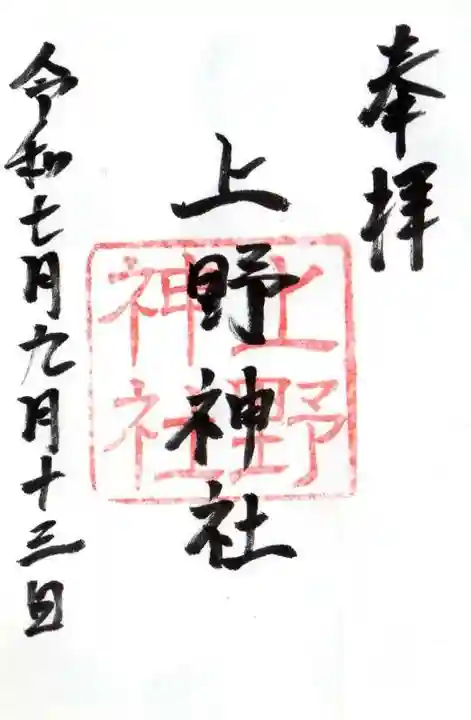 奉拝
上野神社
上野
神社
令和七月九月十三日